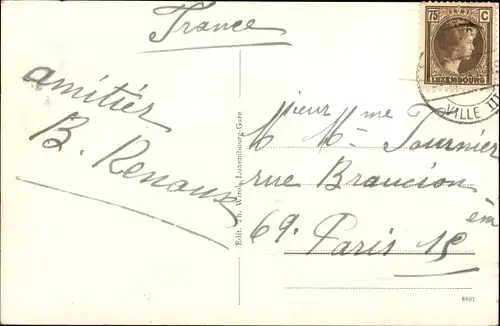 France
amitiés
B. Renaux
Edit. Th. Wirol, Luxembourg-Gare
75 C
LUXEMBOURG
VILLE
Mieur Mme Tournier
rue Brancion
69. Paris 15 ém